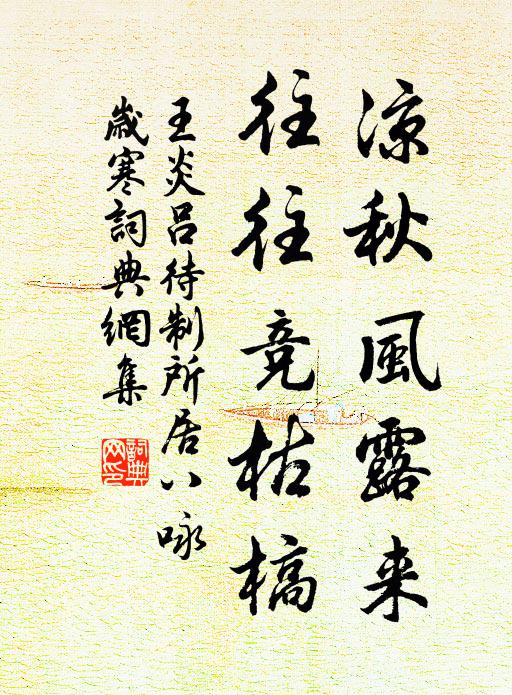 涼秋風露来
往往竞枯槁
王炎呂待制所居八咏
歲寒詞典網集
詞典网印